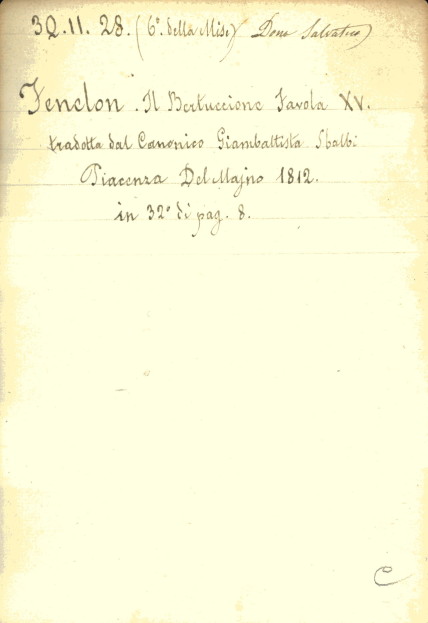 3Q.11.28. (6º. della Misc) Dono Salvatico)
Fenelon. Il Bertuccione Favola XV.
tradotta dal Canonico Giambattista Sbalbi
Piacenza Del Majno 1812.
in 32º di pag. 8.
C